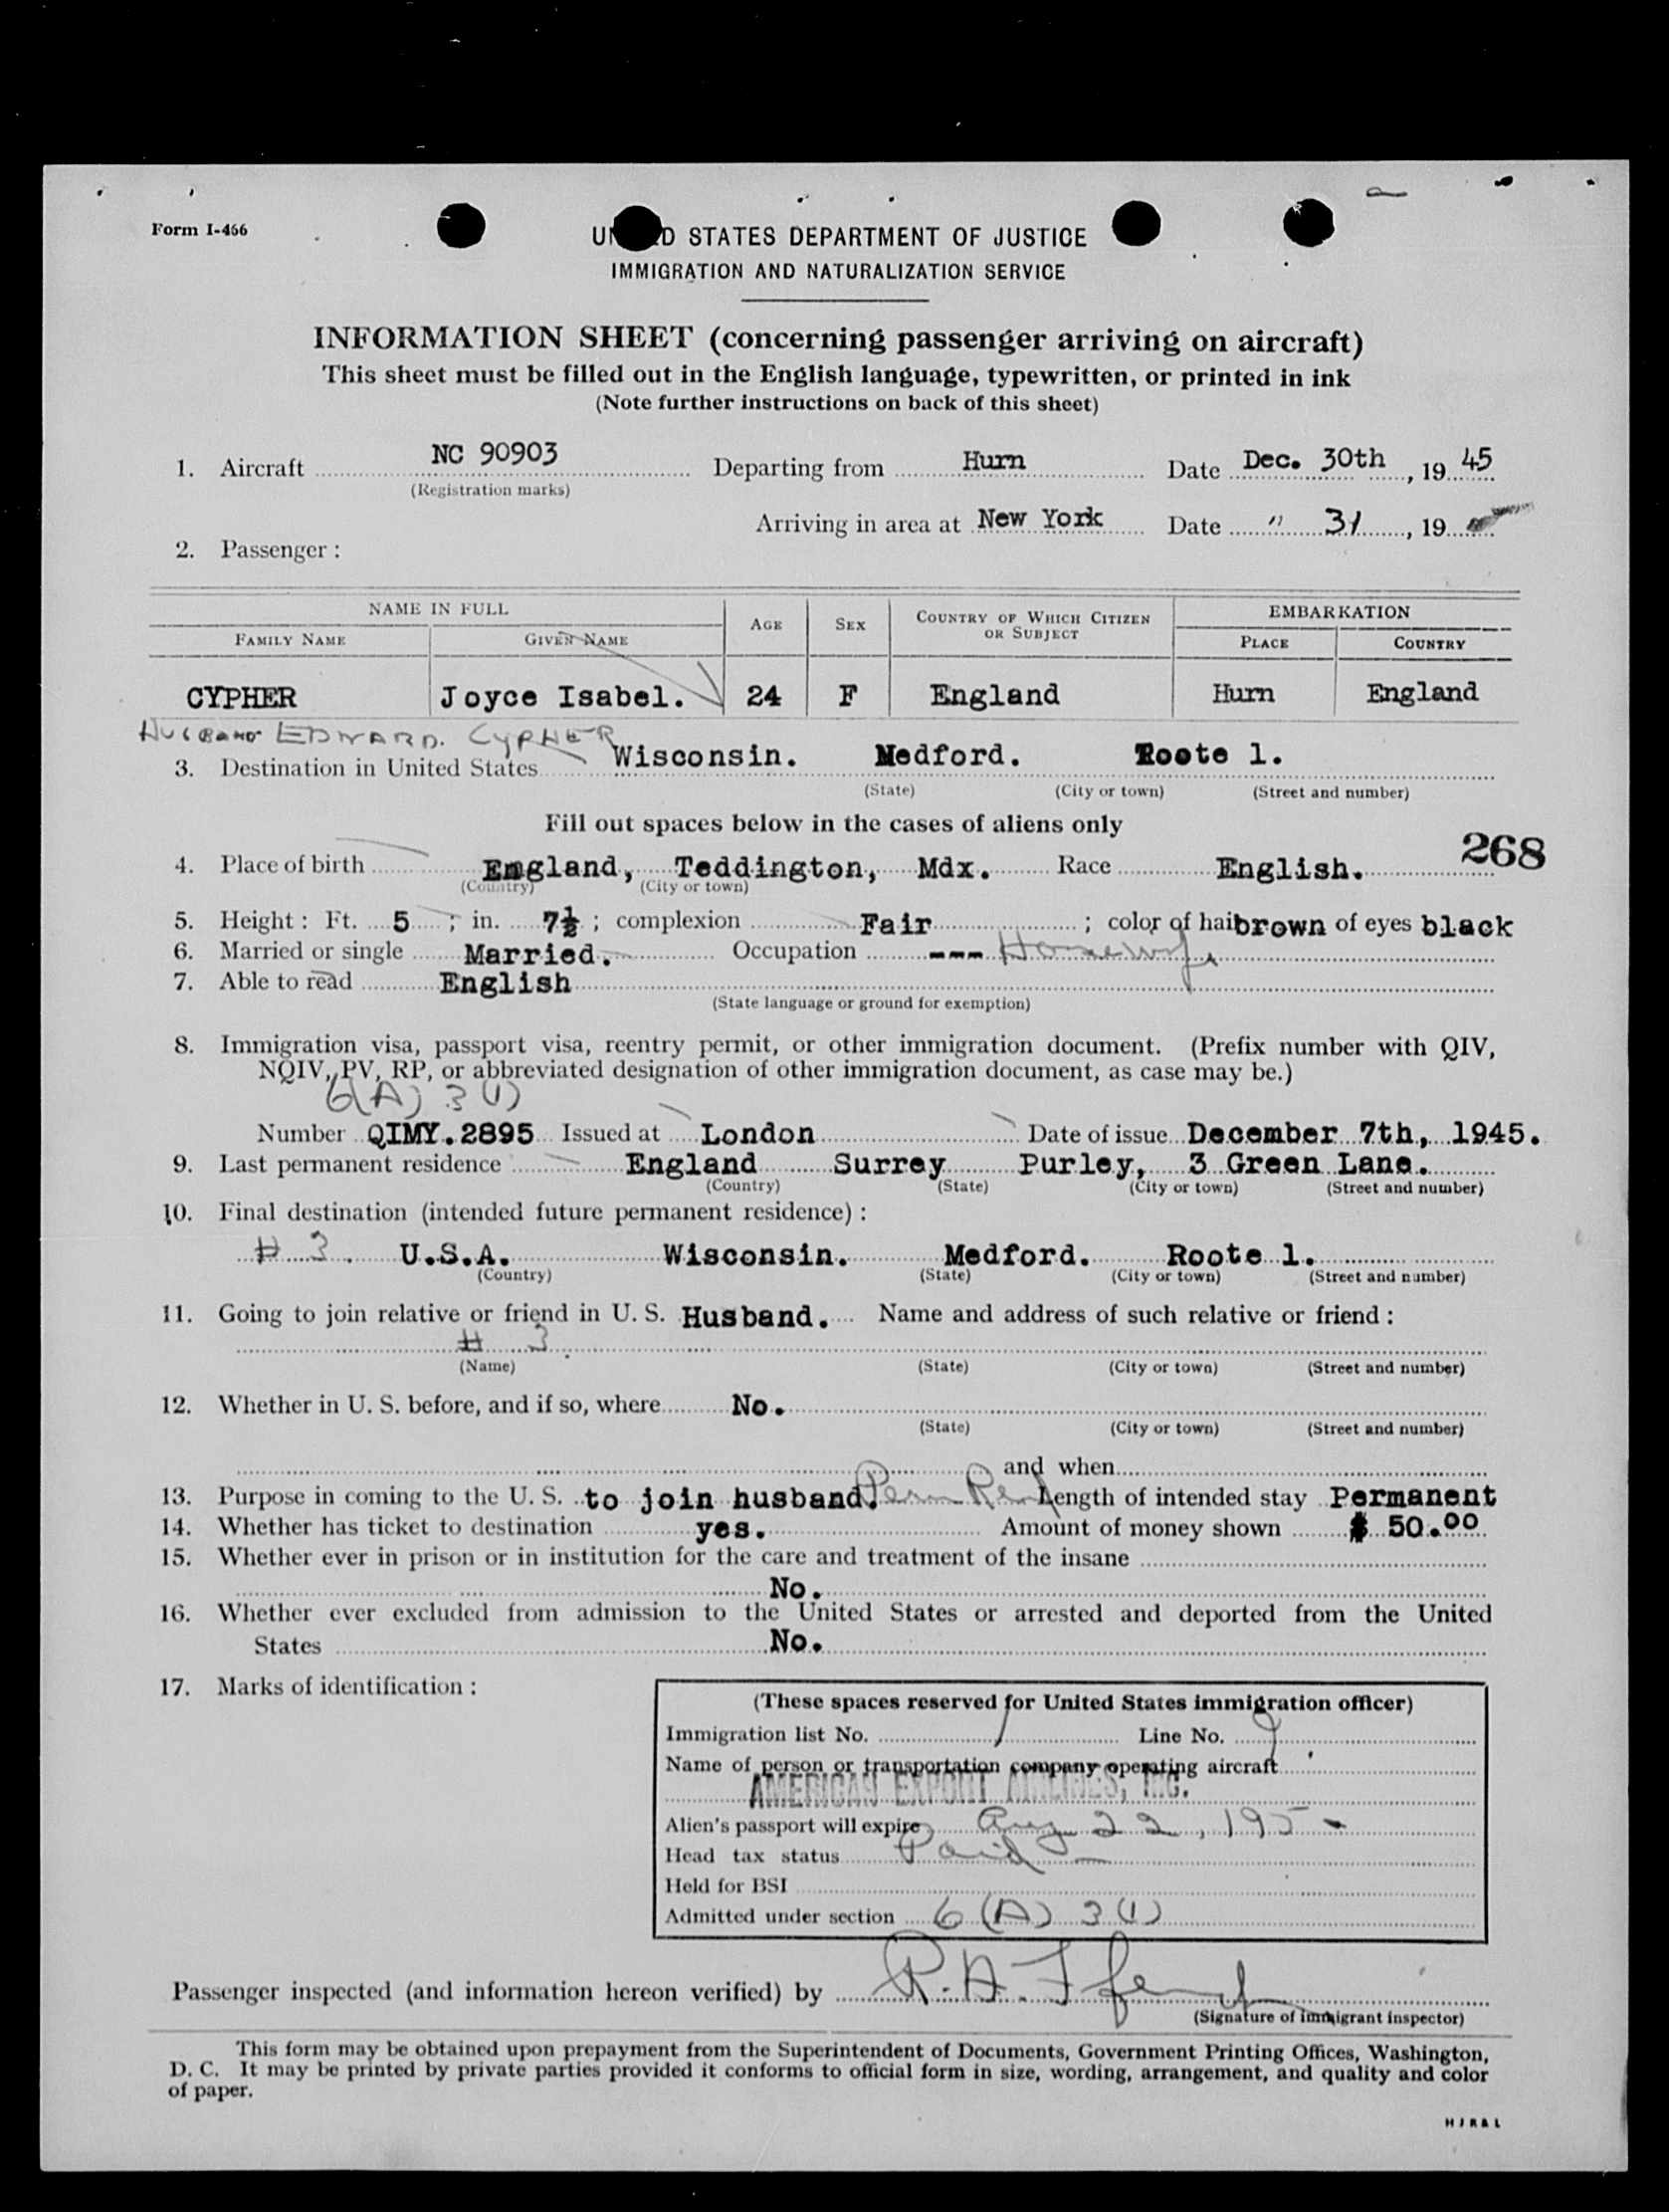 Form I-466
UNITED STATES DEPARTMENT OF JUSTICE
IMMIGRATION AND NATURALIZATION SERVICE
INFORMATION SHEET (concerning passenger arriving on aircraft)
This sheet must be filled out in the English language, typewritten, or printed in ink
(Note further instructions on back of this sheet)
1. Aircraft NC 90903 Departing from Hurn Date Dec. 30th, 19 45
(Registration marks)
Arriving in area at New York Date " 31, 19
2. Passenger :
NAME IN FULL AGE SEX COUNTRY OF WHICH CITIZEN OR SUBJECT EMBARKATION
FAMILY NAME GIVEN NAME PLACE COUNTRY
CYPHER Joyce Isabel. 24 F England Hurn England
HUSBAND EDWARD. CYPHER
3. Destination in United States Wisconsin. Medford. Roote 1.
(State) (City or town) (Street and number)
Fill out spaces below in the cases of aliens only
268
4. Place of birth England, Teddington, Mdx. Race English.
(Country) (City or town)
5. Height : Ft. 5 ; in. 7½ ; complexion Fair ; color of hai brown of eyes black
6. Married or single Married. Occupation --- Housewife
7. Able to read English
(State language or ground for exemption)
8. Immigration visa, passport visa, reentry permit, or other immigration document. (Prefix number with QIV,
NQIV, PV, RP, or abbreviated designation of other immigration document, as case may be.)
6(A) 3(1)
Number QIMY.2895 Issued at London Date of issue December 7th, 1945.
9. Last permanent residence England Surrey Purley, 3 Green Lane.
(Country) (State) (City or town) (Street and number)
10. Final destination (intended future permanent residence) :
# 3. U.S.A. Wisconsin. Medford. Roote 1.
(Country) (State) (City or town) (Street and number)
11. Going to join relative or friend in U. S. Husband. Name and address of such relative or friend :
# 3.
(Name) (State) (City or town) (Street and number)
12. Whether in U. S. before, and if so, where No.
(State) (City or town) (Street and number)
and when
13. Purpose in coming to the U. S. to join husband. Perm Res Length of intended stay Permanent
14. Whether has ticket to destination yes. Amount of money shown $ 50.00
15. Whether ever in prison or in institution for the care and treatment of the insane
No.
16. Whether ever excluded from admission to the United States or arrested and deported from the United
States No.
17. Marks of identification :
(These spaces reserved for United States immigration officer)
Immigration list No. 1 Line No. 9
Name of person or transportation company operating aircraft
AMERICAN EXPORT AIRLINES, INC.
Alien's passport will expire Aug 22, 195
Head tax status Paid
Held for BSI
Admitted under section 6 (A) 3 (1)
Passenger inspected (and information hereon verified) by R. A.
(Signature of immigrant inspector)
This form may be obtained upon prepayment from the Superintendent of Documents, Government Printing Offices, Washington,
D. C. It may be printed by private parties provided it conforms to official form in size, wording, arrangement, and quality and color
of paper.